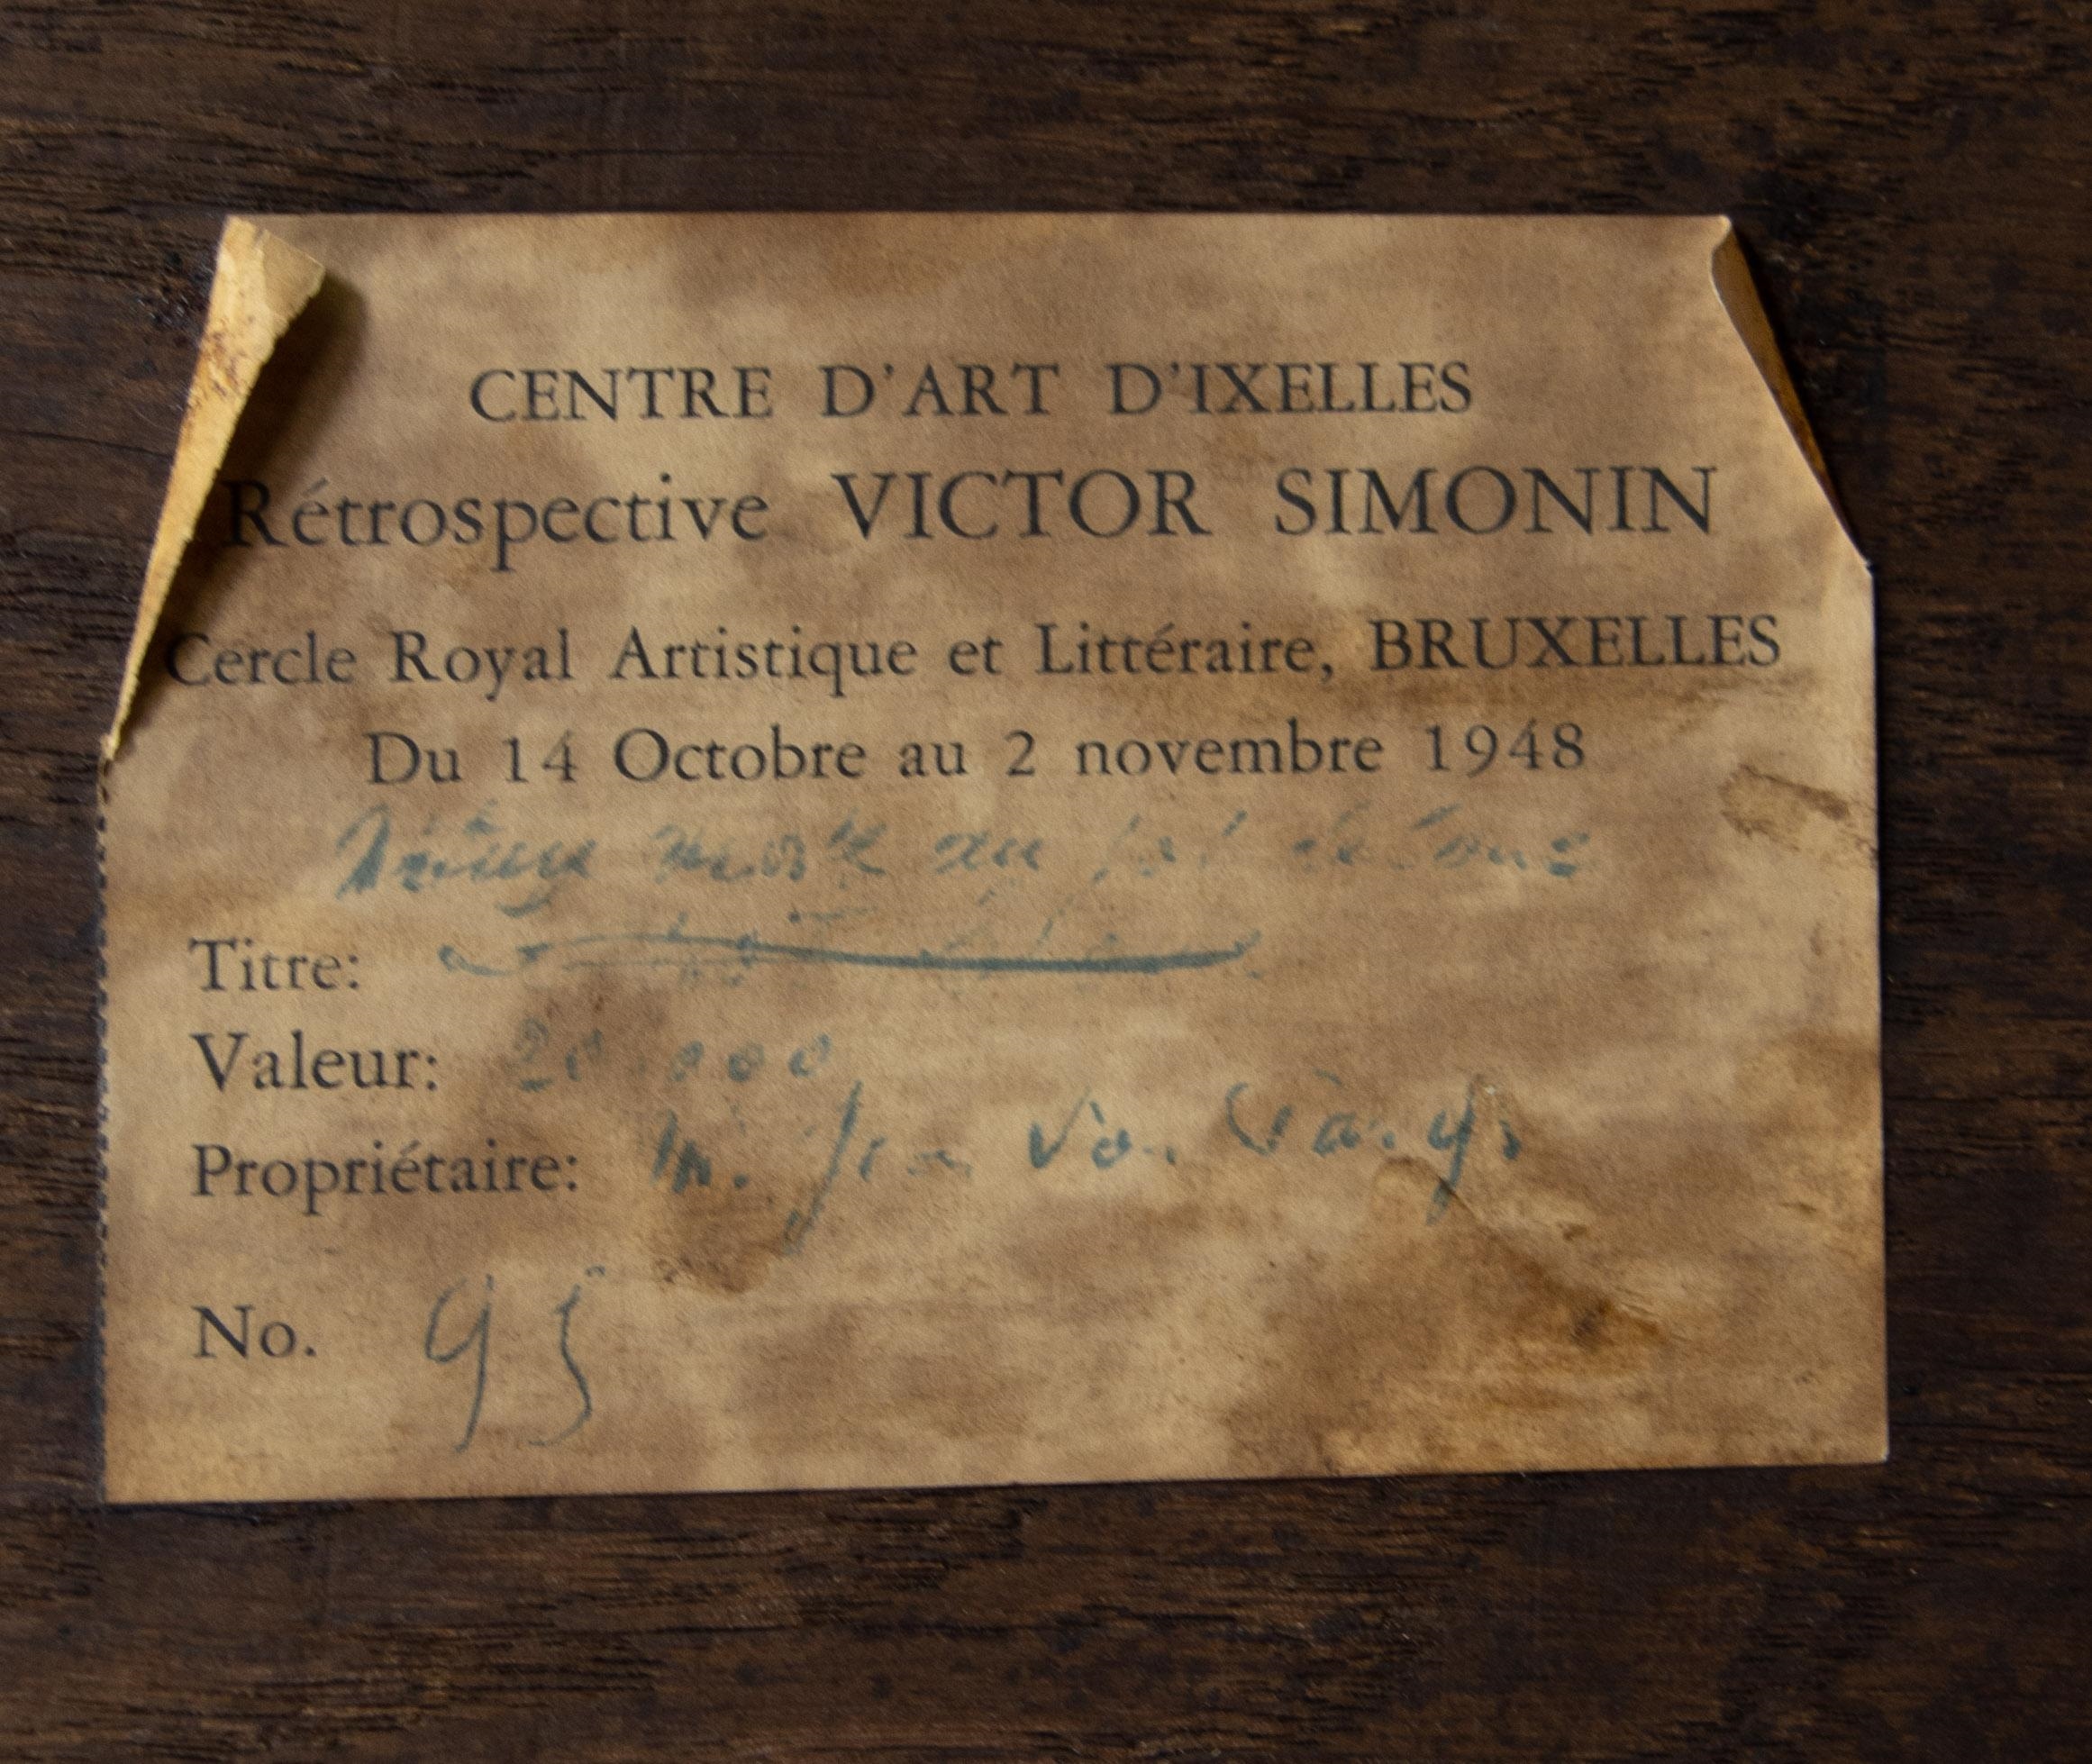 CENTRE D'ART D'IXELLES
Rétrospective VICTOR SIMONIN
Cercle Royal Artistique et Littéraire, BRUXELLES
Du 14 Octobre au 2 novembre 1948
Nature morte au
Titre:
Valeur: 20.000
Propriétaire: M.
No. 95